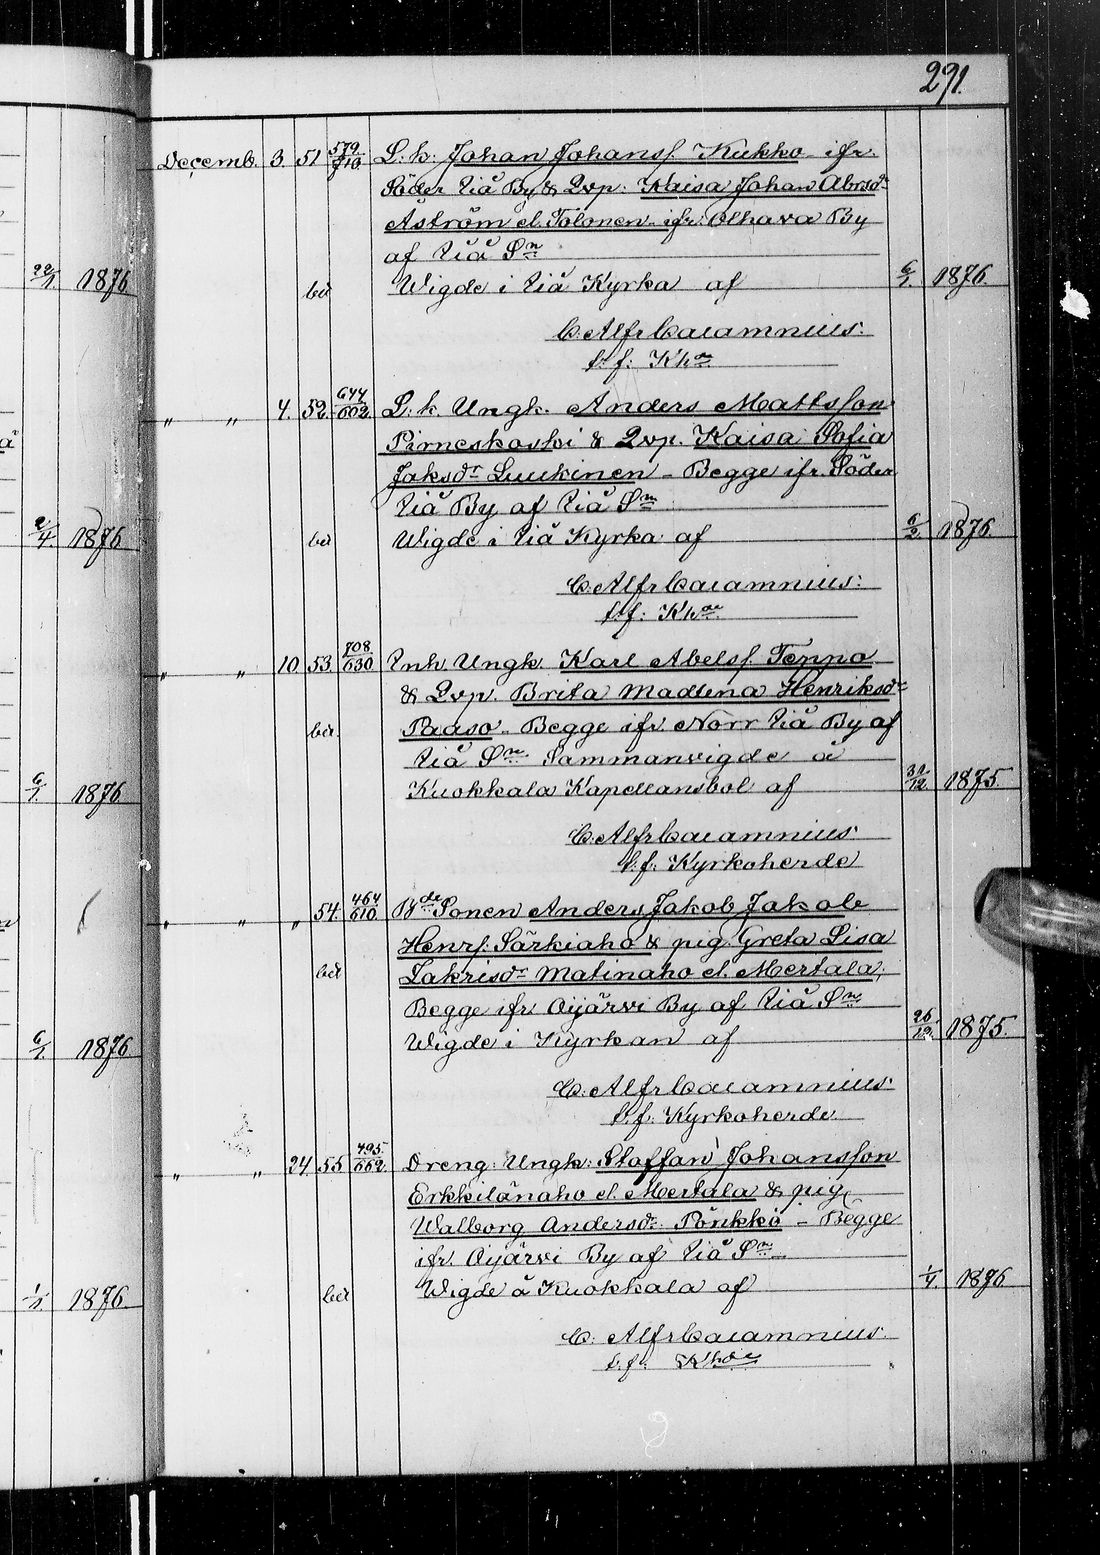 291.
Decemb. 3. 51 579/710. L. k. Johan Johansf. Kukko ifr.
Söder Iiå By & Qvp. Kaisa Johan Abrsdr
Åström el. Tolonen ifr. Olhava By
af Iiå Sn
22/1 1876 bd Wigde i Iiå Kyrka af 6/1. 1876.
C. Alfr Cajamnius.
t. f. Khde
„ „ 4. 52. 644/602. L. k. Ungk. Anders Mattsson
Pirneskoski & Qvp. Kaisa Sofia
Jaksdr Luukinen - Begge ifr. Söder
Iiå By af Iiå Sn
2/4. 1876 bd Wigde i Iiå Kyrka af 6/2. 1876.
C. Alfr Cajamnius:
t. f. Khde
„ „ 10. 53. 708./630 Inh. Ungk. Karl Abelsf. Tenno
& Qvp. Brita Madlena Henriksdr
bd. Paaso - Begge ifr. Norr Iiå By af
Iiå Sn Sammanvigde å
6/1. 1876 Kuokkala Kapellansbol af 31/12. 1875.
C. Alfr Cajamnius.
t. f. Kyrkoherde
„ „ „ 54. 464/610. Bde Sonen Anders Jakob Jakob
Henrs. Särkiaho & pig. Greta Lisa
bd Zakrisdr Matinaho el. Mertala,
Begge ifr. Oijärvi By af Iiå Sn
6/1. 1876 Wigde i Kyrkan af 26/12. 1875.
C. Alfr Cajamnius.
t. f. Kyrkoherde
„ „ 24. 55 495/662. Dreng. Ungk. Staffan Johansson
Erkkilänaho el. Mertala & pig.
Walborg Andersdr Pönkkö - Begge
ifr. Oijärvi By af Iiå Sn
1/1 1876. bd Wigde å Kuokkala af 1/1. 1876
C. Alfr Cajamnius.
t. f. Khde